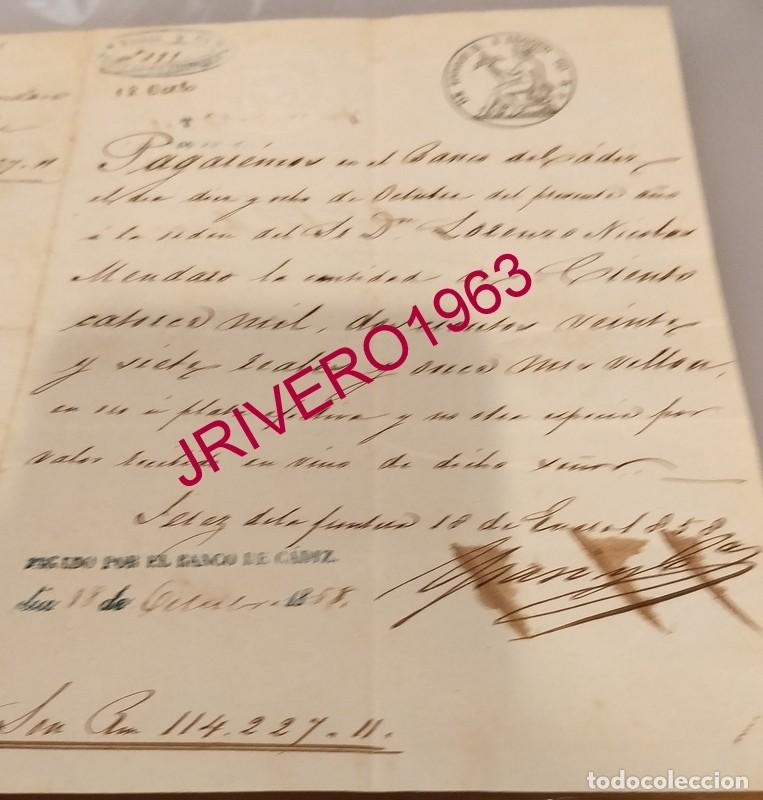 18 Octe
Pagarémos en el Banco de Cádiz
el dia diez y ocho de Octubre del presente año
á la orden del Sr Dn Lorenzo Nicolas
Mendaro la cantidad de Ciento
catorce mil, doscientos veinte
y siete reales once mrs vellon,
en oro ó plata efectiva y no otra especie por
valor recibido en vino de dicho señor.
Jerez de la frontera 18 de Enero 1858
PAGADO POR EL BANCO DE CÁDIZ.
dia 18 de Octubre 1858.
Son Rvn 114.227.11.
27.11
JRIVERO1963
todocoleccion